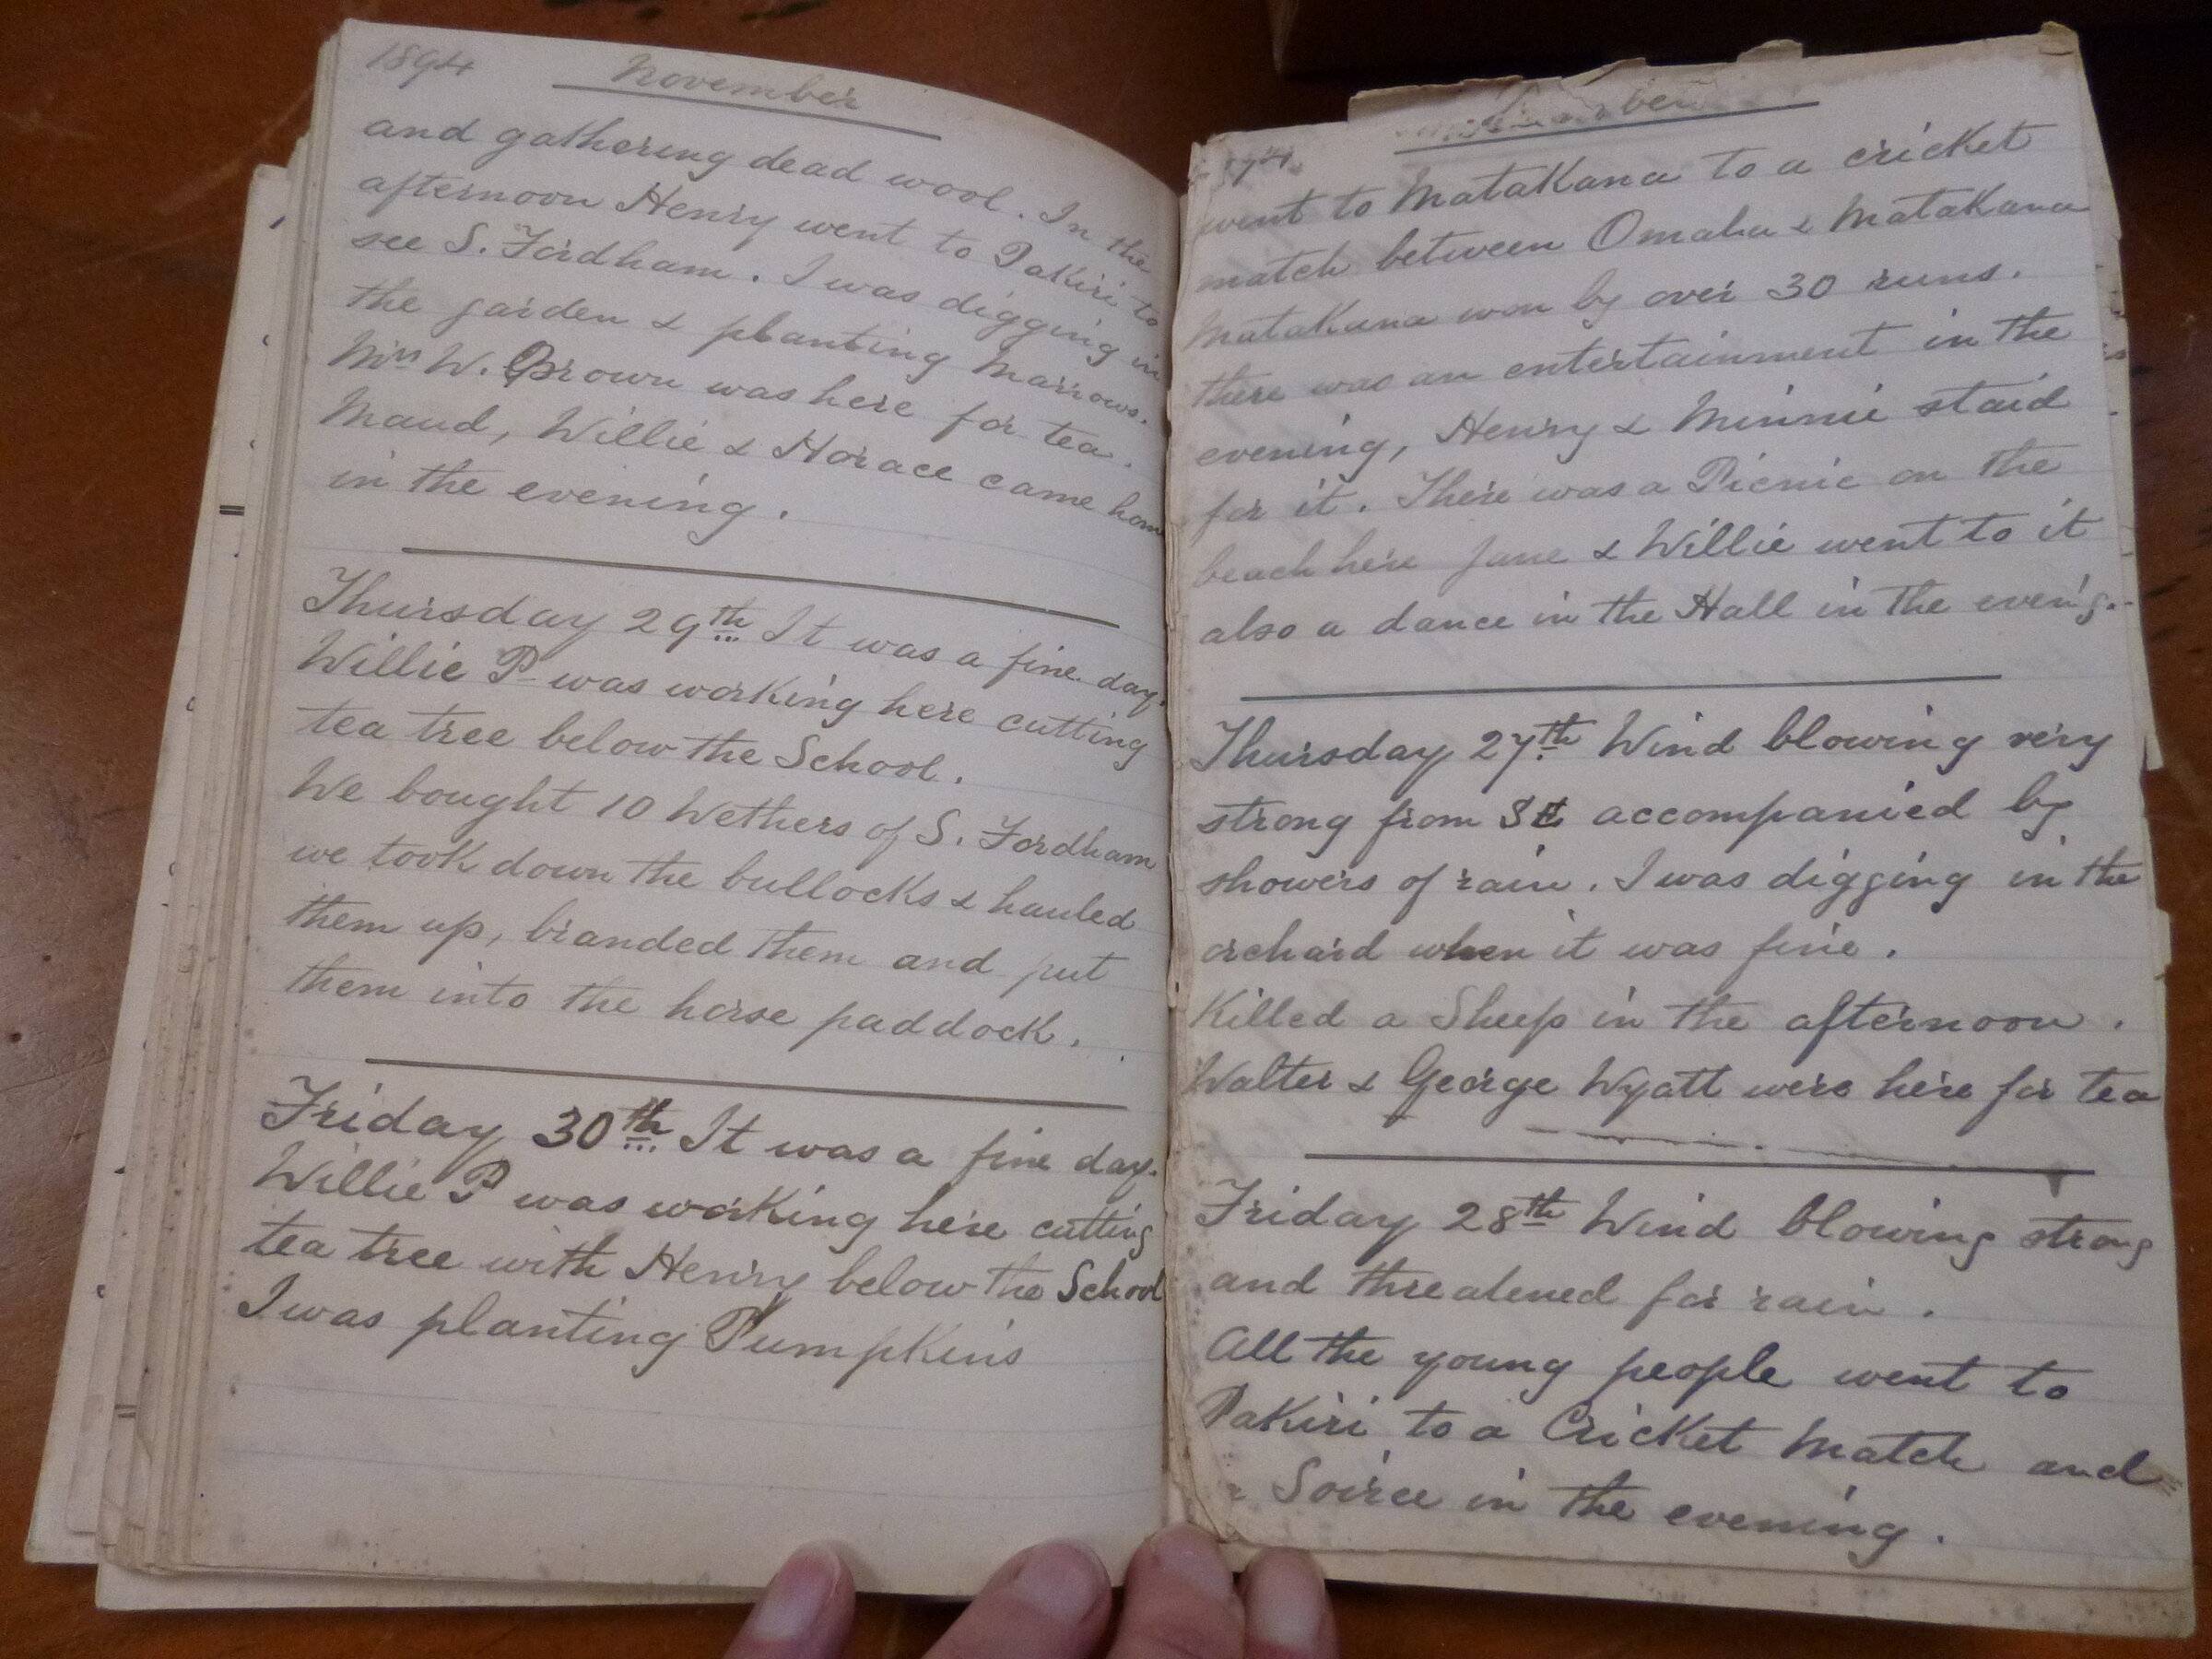 1894 November
and gathering dead wool. In the
afternoon Henry went to Pakiri to
see S. Fordham. I was digging in
the garden & planting Marrows.
Mrs W. Brown was here for tea.
Maud, Willie & Horace came home
in the evening.
Thursday 29th It was a fine day.
Willie P was working here cutting
tea tree below the School.
We bought 10 Wethers of S. Fordham
we took down the bullocks & hauled
them up, branded them and put
them into the horse paddock.
Friday 30th It was a fine day.
Willie P was working here cutting
tea tree with Henry below the School
I was planting Pumpkins
went to Matakana to a cricket
match between Omaha & Matakana
Matakana won by over 30 runs.
there was an entertainment in the
evening, Henry & Minnie staid
for it. There was a Picnic on the
beach here Jane & Willie went to it
also a dance in the Hall in the even'g.
Thursday 27th Wind blowing very
strong from SE accompanied by
showers of rain. I was digging in the
orchard when it was fine.
Killed a Sheep in the afternoon.
Walter & George Wyatt were here for tea
Friday 28th Wind blowing strong
and threatened for rain.
All the young people went to
Pakiri to a Cricket Match and
Soiree in the evening.